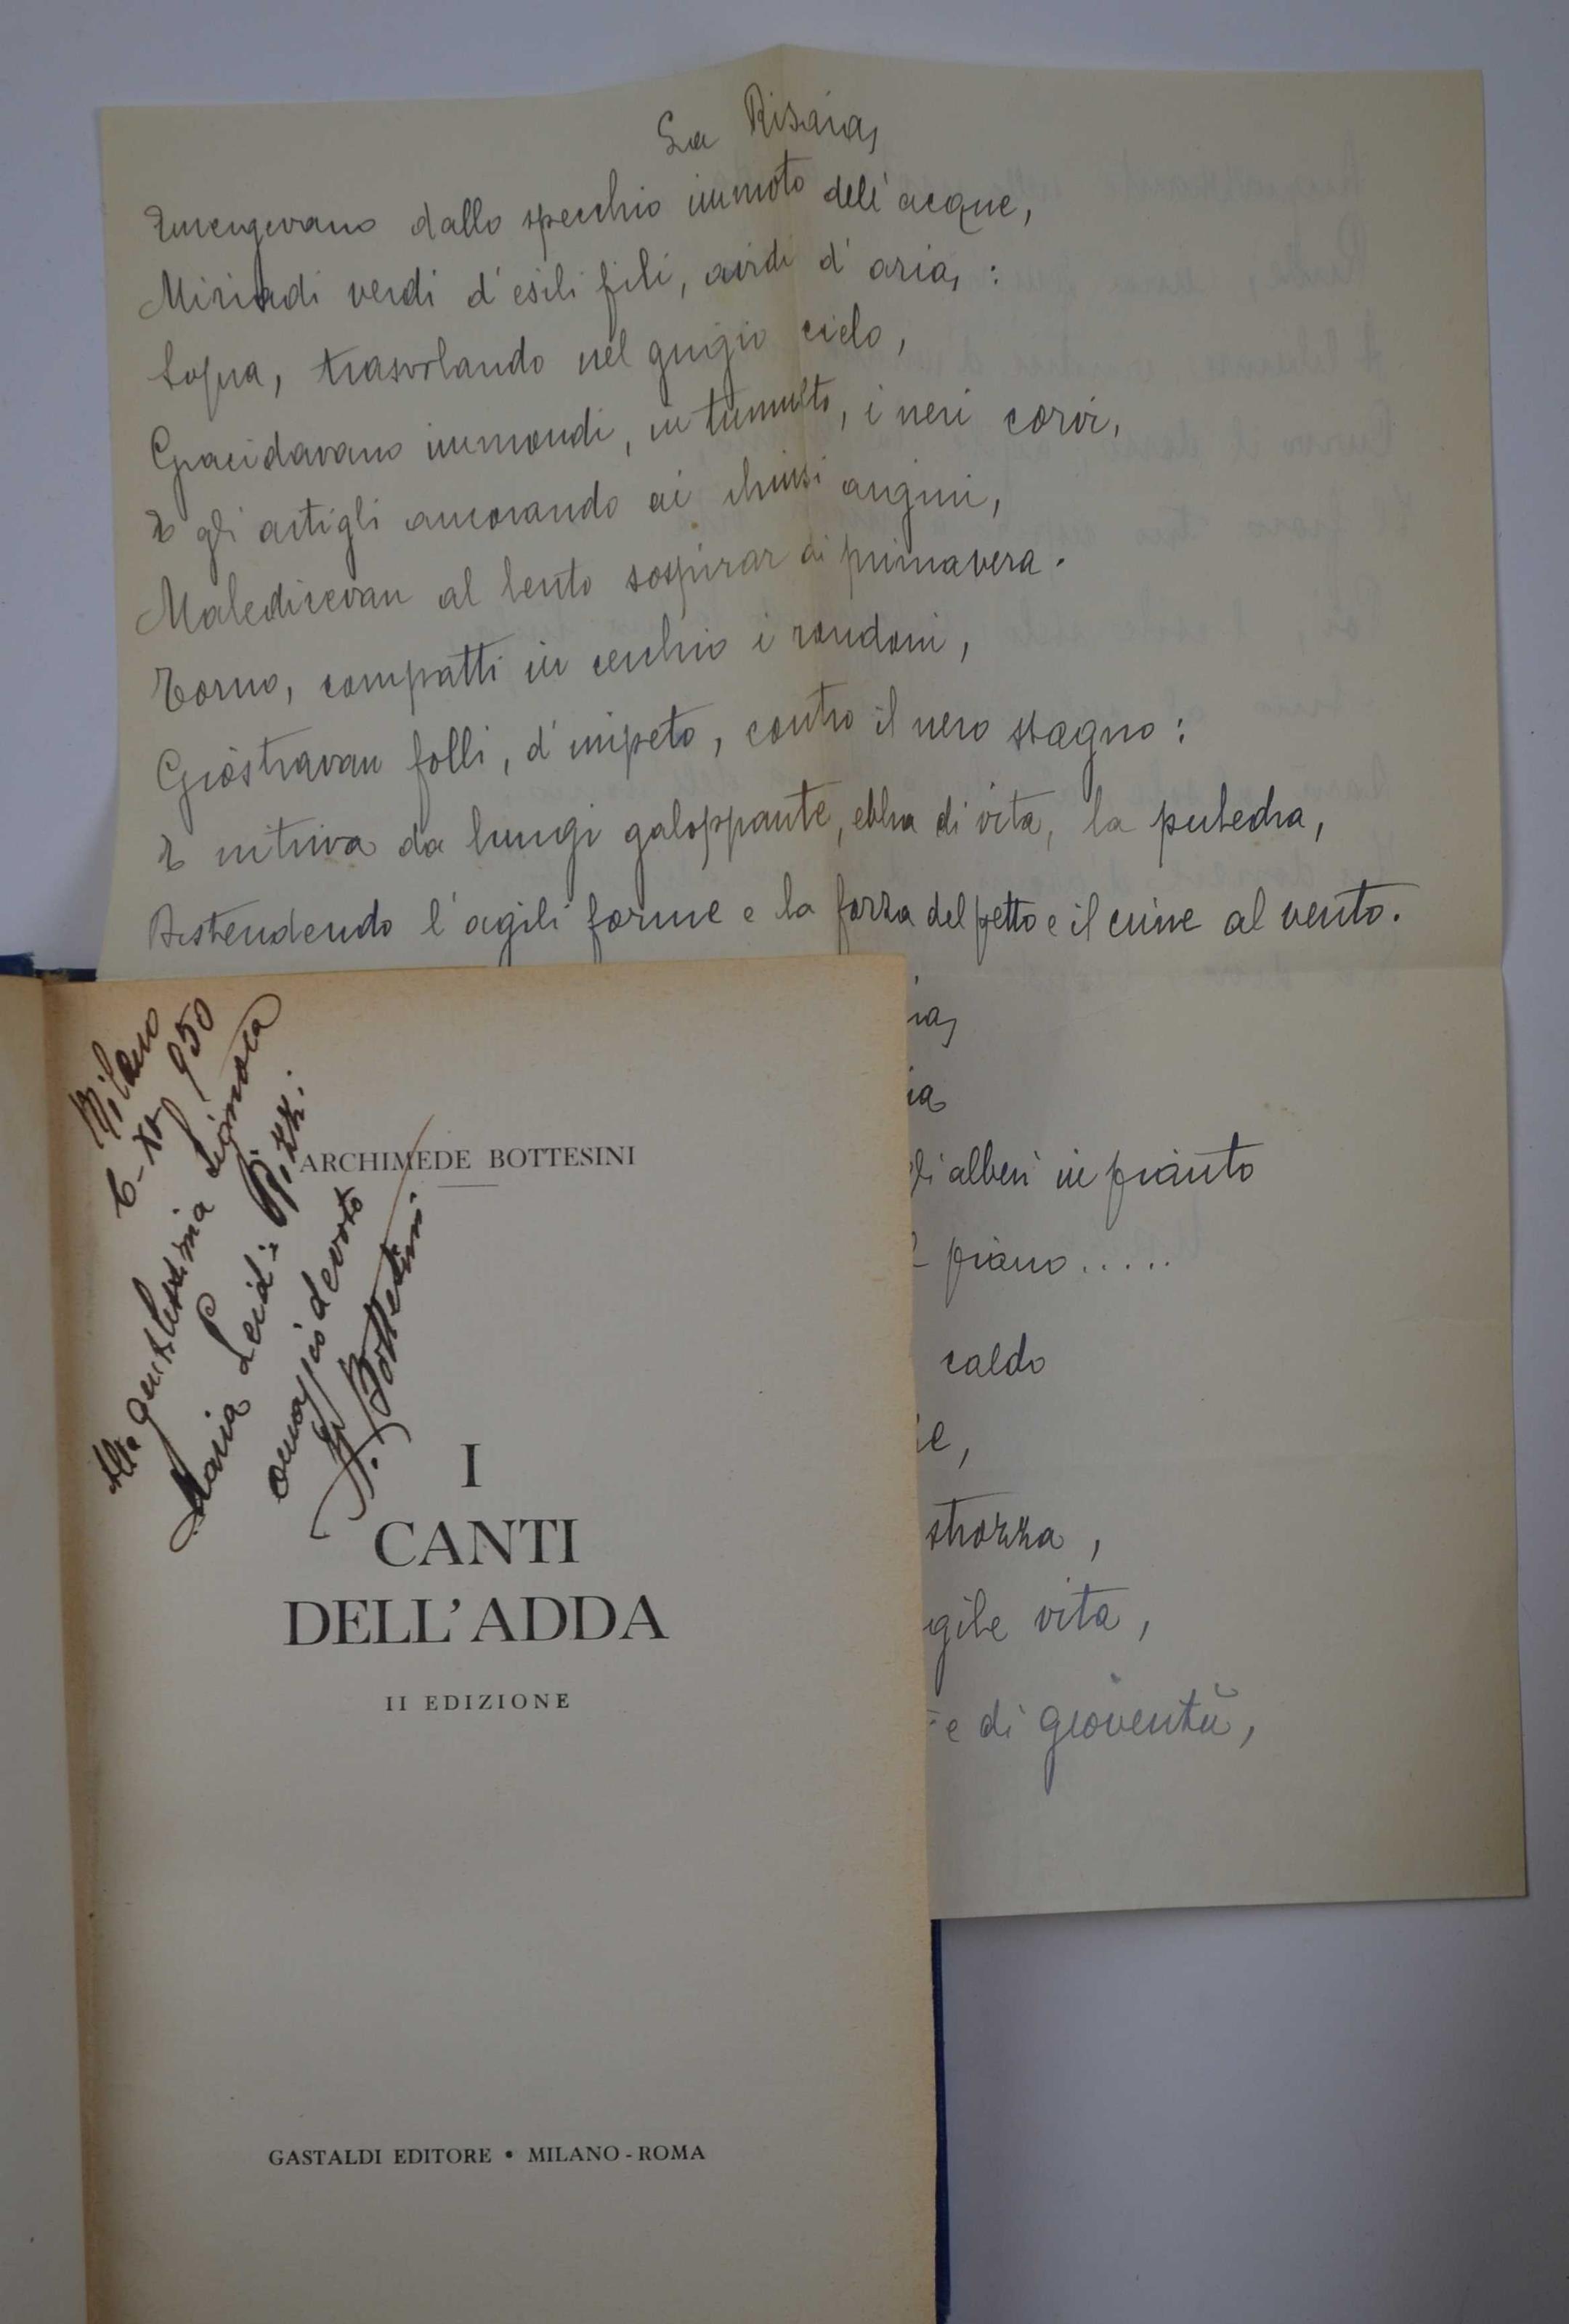 La Risaia
Emergevano dallo specchio immoto dell'acque,
Miriadi verdi d'esili fili, avidi d'aria:
Sopra, trasvolando nel grigio cielo,
Gracidavano immondi, in tumulto, i neri corvi,
E gli artigli ancorando ai chiusi argini,
Maledicevan al lento sospirar di primavera.
Torno, compatti in cerchio i rondoni,
Giostravan folli, d'impeto, contro il nero stagno:
E nitriva da lungi galoppante, ebbra di vita, la puledra,
Distendendo l'agili forme e la forza del petto e il crine al vento.
ia,
ia
gli alberi in pianto
piano.....
caldo
ie,
strozza,
gile vita,
e di gioventù,
Milano
6-XI-950
Alla gentilissima Signora
Maria Leidi Rizzi
omaggio devoto
A. Bottesini
ARCHIMEDE BOTTESINI
I
CANTI
DELL'ADDA
II EDIZIONE
GASTALDI EDITORE • MILANO - ROMA